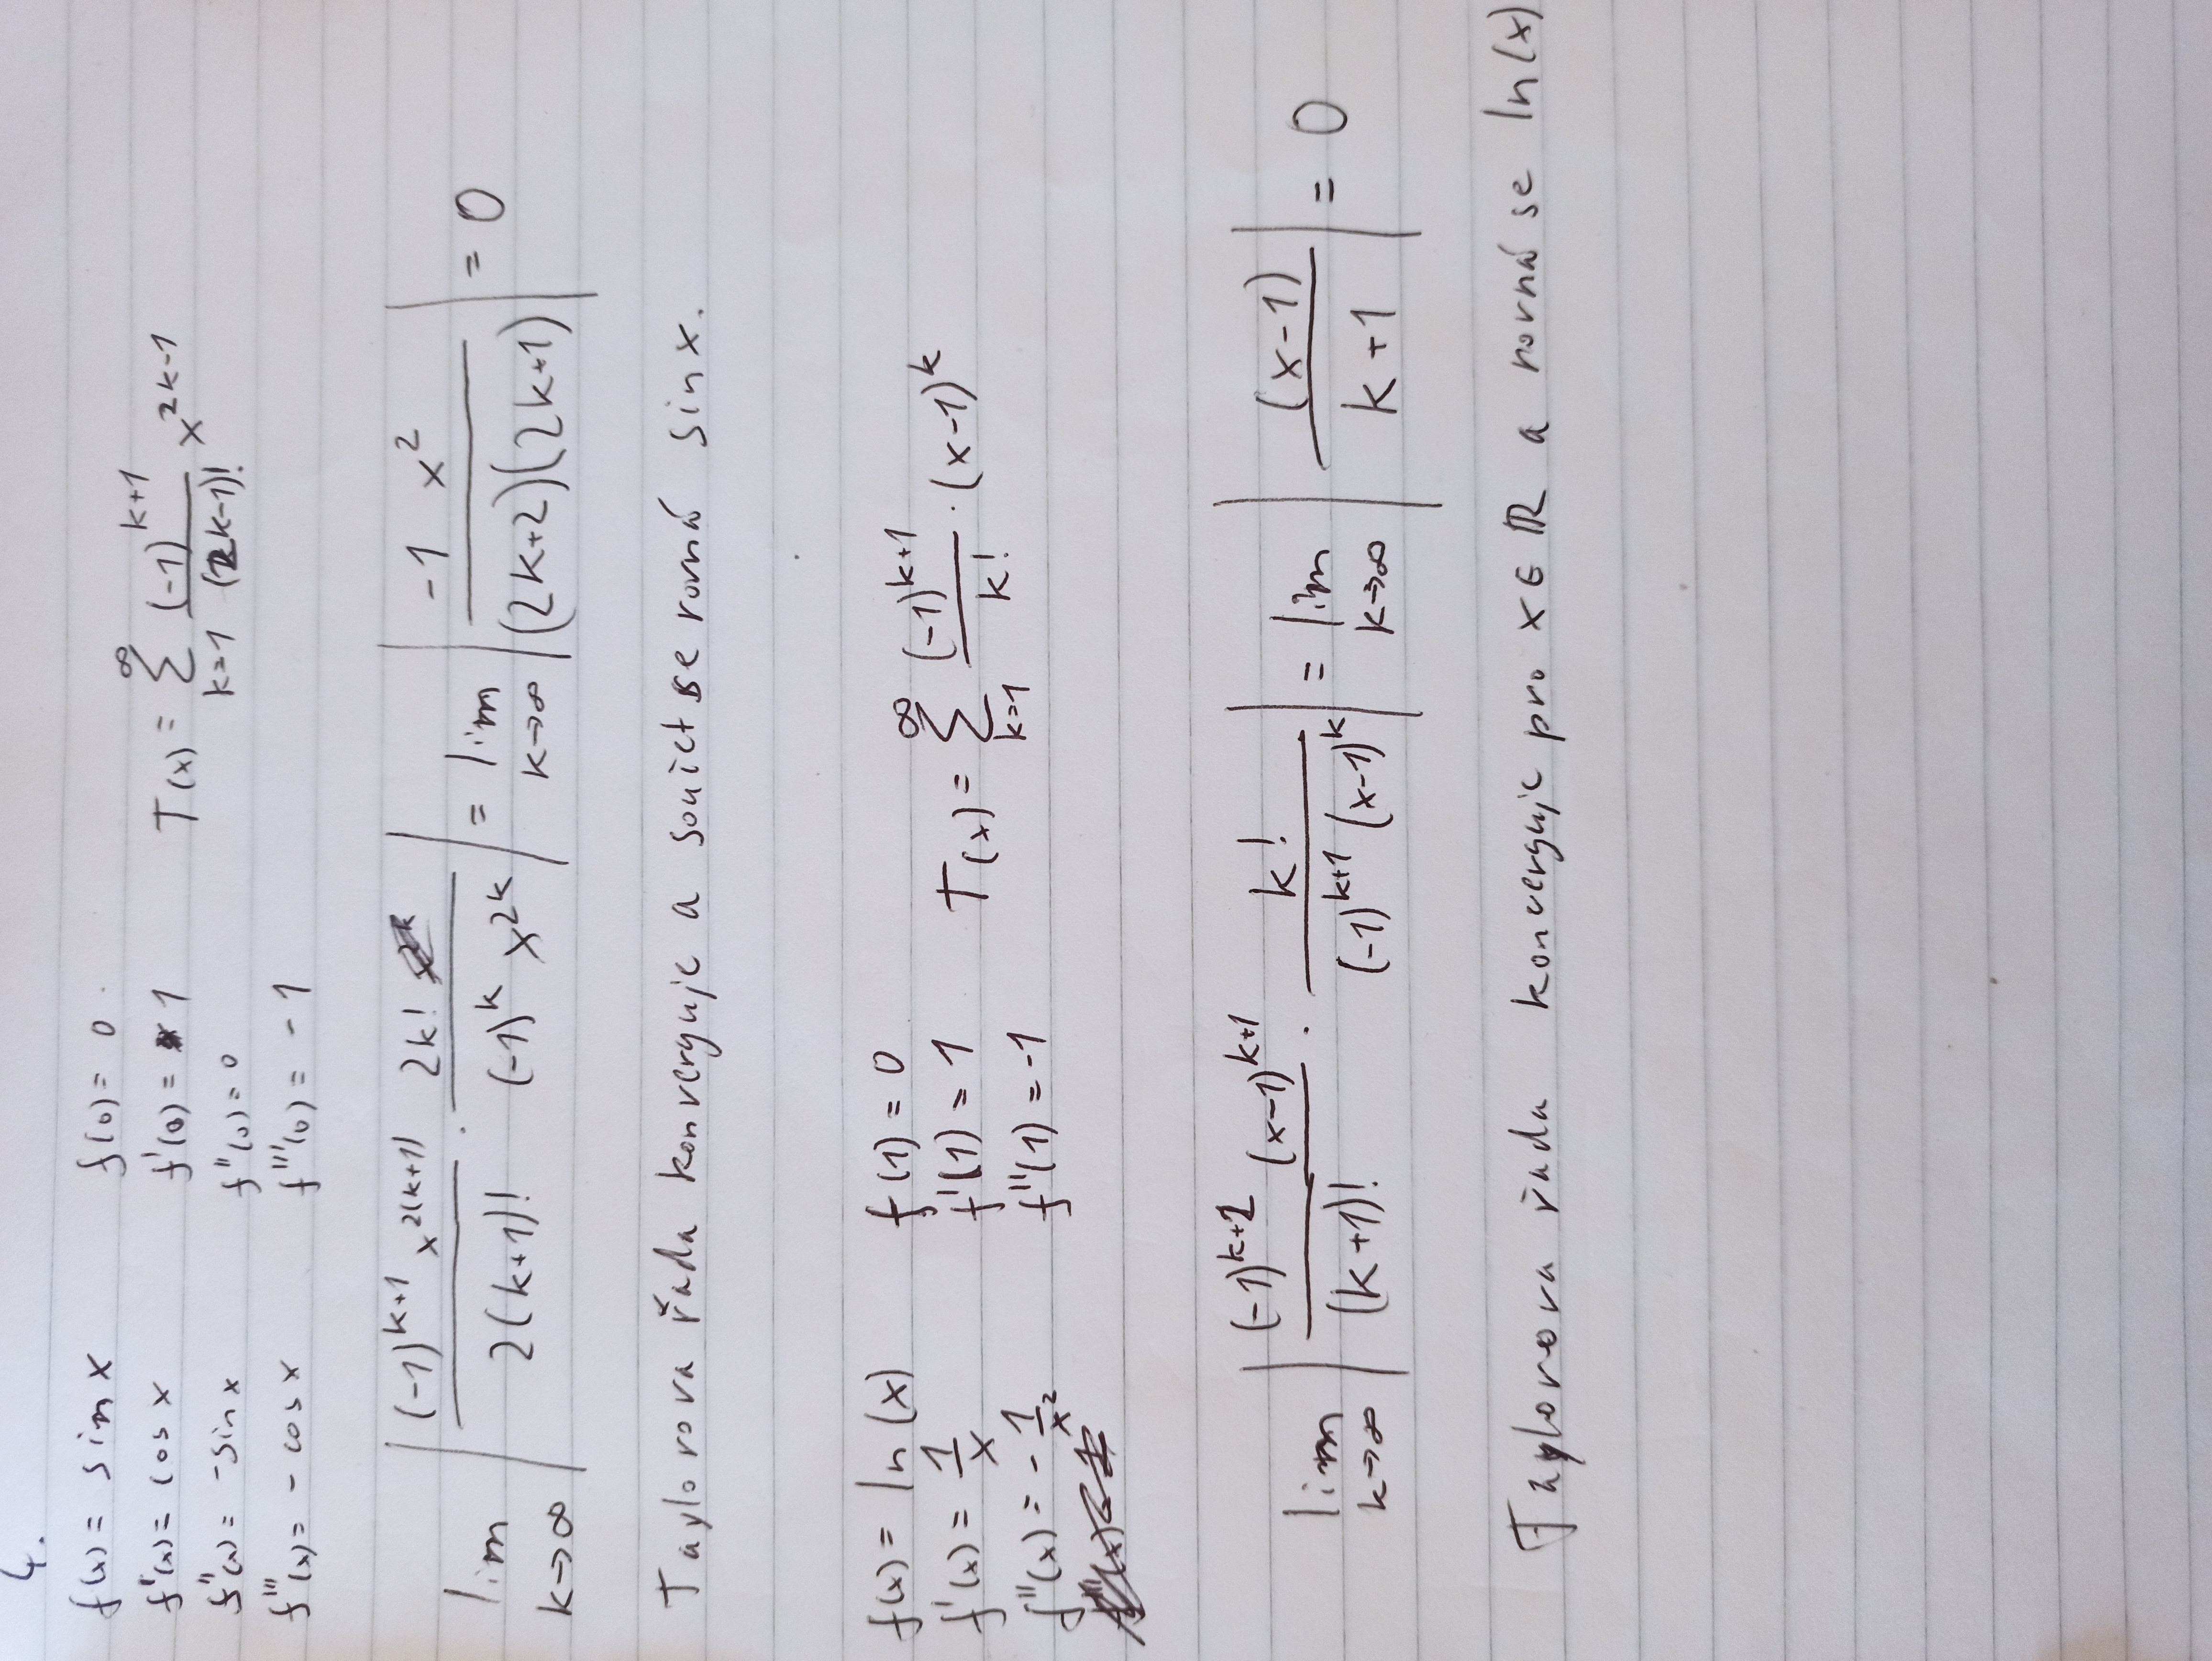 4.
f(x) = sin x f(0) = 0 .
f'(x) = cos x f'(0) = 1 T(x) = ∑_{k=1}^{∞} \frac{(-1)^{k+1}}{(2k-1)!} x^{2k-1}
f''(x) = -sin x f''(0) = 0
f'''(x) = - cos x f'''(0) = -1
lim_{k→∞} | \frac{(-1)^{k+1} x^{2(k+1)}}{2(k+1)!} · \frac{2k!}{(-1)^k x^{2k}} | = lim_{k→∞} | \frac{-1 x^2}{(2k+2)(2k+1)} | = 0
Taylorova řada konverguje a součet se rovná sin x.
f(x) = ln(x) f(1) = 0
f'(x) = \frac{1}{x} f'(1) = 1 T(x) = ∑_{k=1}^{∞} \frac{(-1)^{k+1}}{k!} · (x-1)^k
f''(x) = -\frac{1}{x^2} f''(1) = -1
lim_{k→∞} | \frac{(-1)^{k+2} (x-1)^{k+1}}{(k+1)!} · \frac{k!}{(-1)^{k+1} (x-1)^k} | = lim_{k→∞} | \frac{(x-1)}{k+1} | = 0
Taylorova řada konverguje pro x ∈ ℝ a rovná se ln(x)